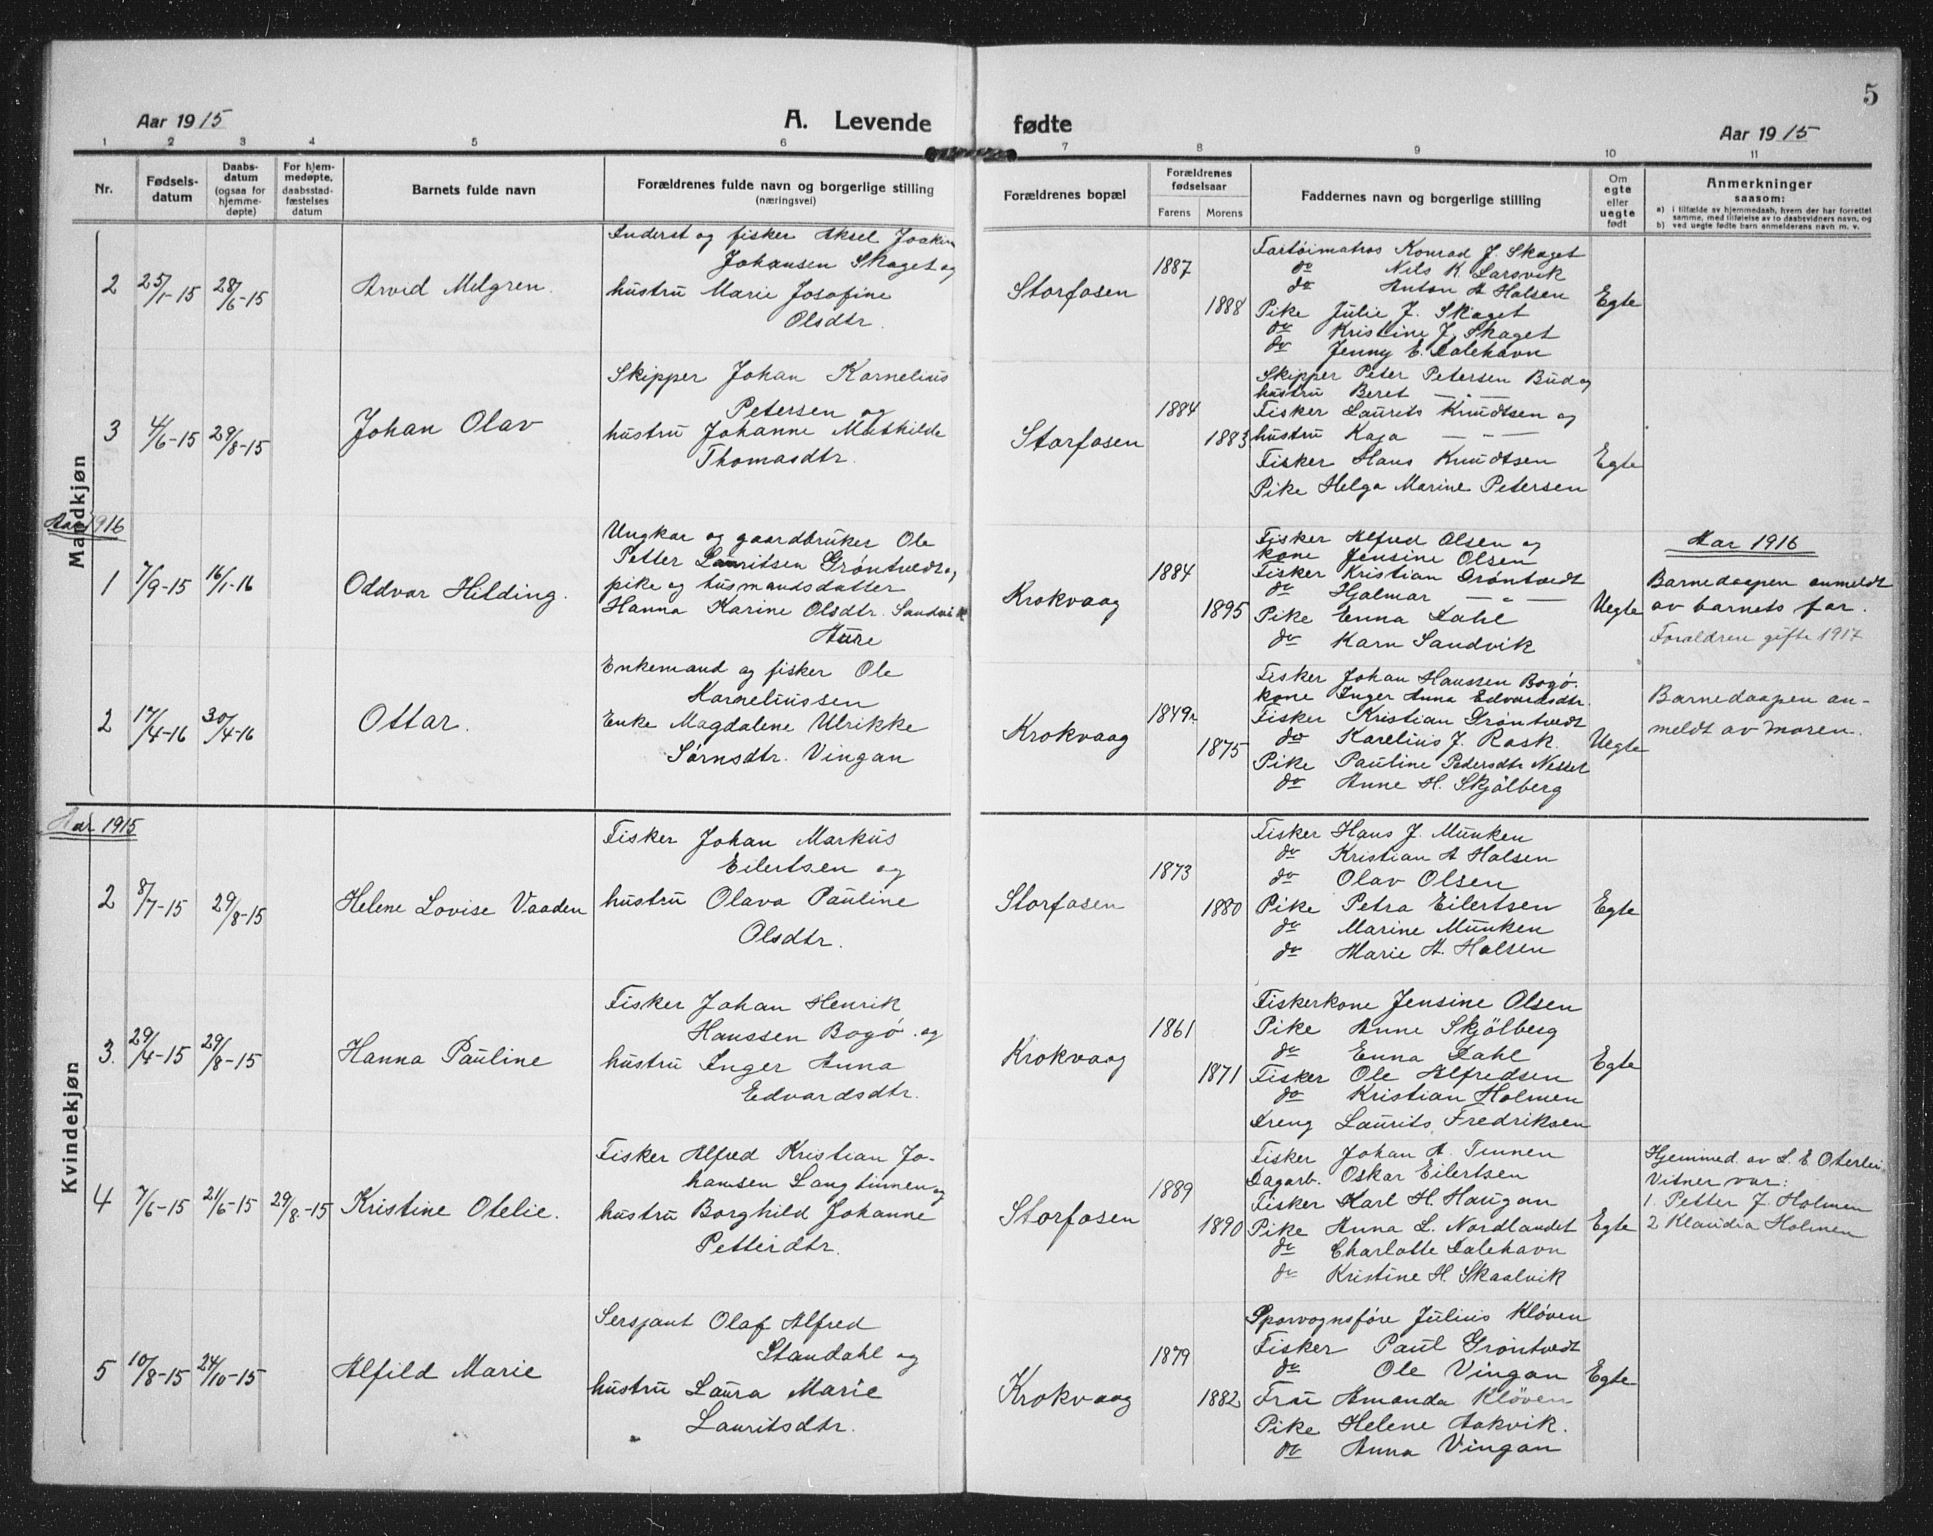 5
Aar 1915
A. Levende fødte
Aar 1915
1 2 3 4 5 6 7 8 9 10 11
Nr.
Fødsels-
datum
Daabs-
datum
(ogsaa for
hjemme-
døpte)
For hjem-
medøpte,
daabsstad-
fæstelses
datum
Barnets fulde navn
Forældrenes fulde navn og borgerlige stilling
(næringsvei)
Forældrenes bopæl
Forældrenes
fødselsaar
Farens Morens
Faddernes navn og borgerlige stilling
Om
egte
eller
uegte
født
Anmerkninger
saasom:
a) i tilfælde av hjemmedaab, hvem der har forrettet
samme, med tilføielse av to daabsvidners navn, og
b) ved uegte fødte barn anmelderens navn m. v.
Mandkjøn
2
25/1-15
28/6-15
Arvid Melgren.
og fisker Aksel Joakim
Johansen Skaget og
hustru Marie Josofine
Olsdtr.
Storfosen
1887
1888
Fartøimatros Konrad J. Skaget
do Nils K. Larsvik
do Anton A Holsen
Pike Julie J. Skaget
do Kristine J. Skaget
do Jenny E. Dalehavn
Egte
3
4/6-15
29/8-15
Johan Olav
Skipper Johan Kornelius
Petersen og
hustru Johanne Mathilde
Thomasdtr.
Storfosen
1884
1883
Skipper Peter Petersen Bud og
hustru Beret — " —
Fisker Laurits Knudtsen og
hustru Kaja — " —
Fisker Hans Knudtsen
Pike Helga Marine Petersen
Egte
Aar 1916
1
7/9-15
16/1-16
Oddvar Hilding.
Ungkar og gaardbruker Ole
Petter Lauritsen Grøntvedt og
pike og husmandsdatter
Hanna Karine Olsdtr. Sandvik
Aure
Krokvaag
1884
1895
Fisker Alfred Olsen og
kone Jensine Olsen
Fisker Kristian Grøntvedt
do Hjalmar — " —
Pike Enna Dahl
do Karn Sandvik
Uegte
Aar 1916
Barnedaapen anmeldt
av barnets far.
Forældrene gifte 1917
2
17/4-16
30/4-16
Ottar.
Enkemand og fisker Ole
Korneliussen
Enke Magdalene Ulrikke
Sørnsdtr. Vingan
Krokvaag
1849
1875
Fisker Johan Hanssen Bogø.
kone Inger Anna Edvardsdtr.
Fisker Kristian Grøntvedt
do Karelius J. Rask.
Pike Pauline Pedersdtr Nesset
do Anne H. Skjölberg
Uegte
Barnedaapen an-
meldt av moren.
Kvindekjøn
Aar 1915
2
8/7-15
29/8-15
Helene Lovise Vaaden
Fisker Johan Markus
Eilertsen og
hustru Olava Pauline
Olsdtr.
Storfosen
1873
1880
Fisker Hans J. Munken
do Kristian A Holsen
do Olav Olsen
Pike Petra Eilertsen
do Marine Munken
do Marie A. Holsen
Egte
3.
29/4-15
29/8-15
Hanna Pauline
Fisker Johan Henrik
Hanssen Bogø. og
hustru Inger Anna
Edvardsdtr.
Krokvaag
1861
1871
Fiskerkone Jensine Olsen
Pike Anne Skjölberg
do Enna Dahl
Fisker Ole Alfredsen
do Kristian Holmen
Dreng Laurits Fredriksen
Egte
4
7/6-15
21/6-15
29/8-15
Kristine Otelie.
Fisker Alfred Kristian Jo-
hansen Langtinnen og
hustru Borghild Johanne
Petterdtr.
Storfosen
1889
1890
Fisker Johan A. Tinnen
Dagarb. Oskar Eilertsen
Fisker Karl H. Haugan
Pike Anna L. Nordlandet
do Charlotte Dalehavn
do Kristine H. Skaalvik
Egte
Hjemmed. av L. E. Oterlei
Vitner var:
1. Petter J. Holmen
2 Klaudia Holmen
5
10/8-15
24/10-15
Alfild Marie
Sersjant Olaf Alfred
Standahl og
hustru Laura Marie
Lauritsdtr.
Krokvaag
1879
1882
Sporvognsføre Julius Kløven
Fisker Paul Grøntvedt
do Ole Vingan
Frue Amanda Kløven
Pike Helene Aakvik.
do Anna Vingan
Egte